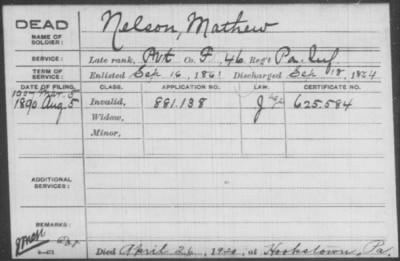 DEAD
NAME OF SOLDIER:
Nelson, Mathew
SERVICE:
Late rank, Pvt Co. F, 46 Reg't Pa. Inf
TERM OF SERVICE:
Enlisted Sep 16, 1861 Discharged Sep 18, 1864
DATE OF FILING. CLASS. APPLICATION NO. LAW. CERTIFICATE NO.
1907 Mar. 5
1890 Aug. 5 Invalid, 881.138 625.584
Widow,
Minor,
ADDITIONAL SERVICES:
REMARKS:
Died April 26, 1920, at Hookstown, Pa.